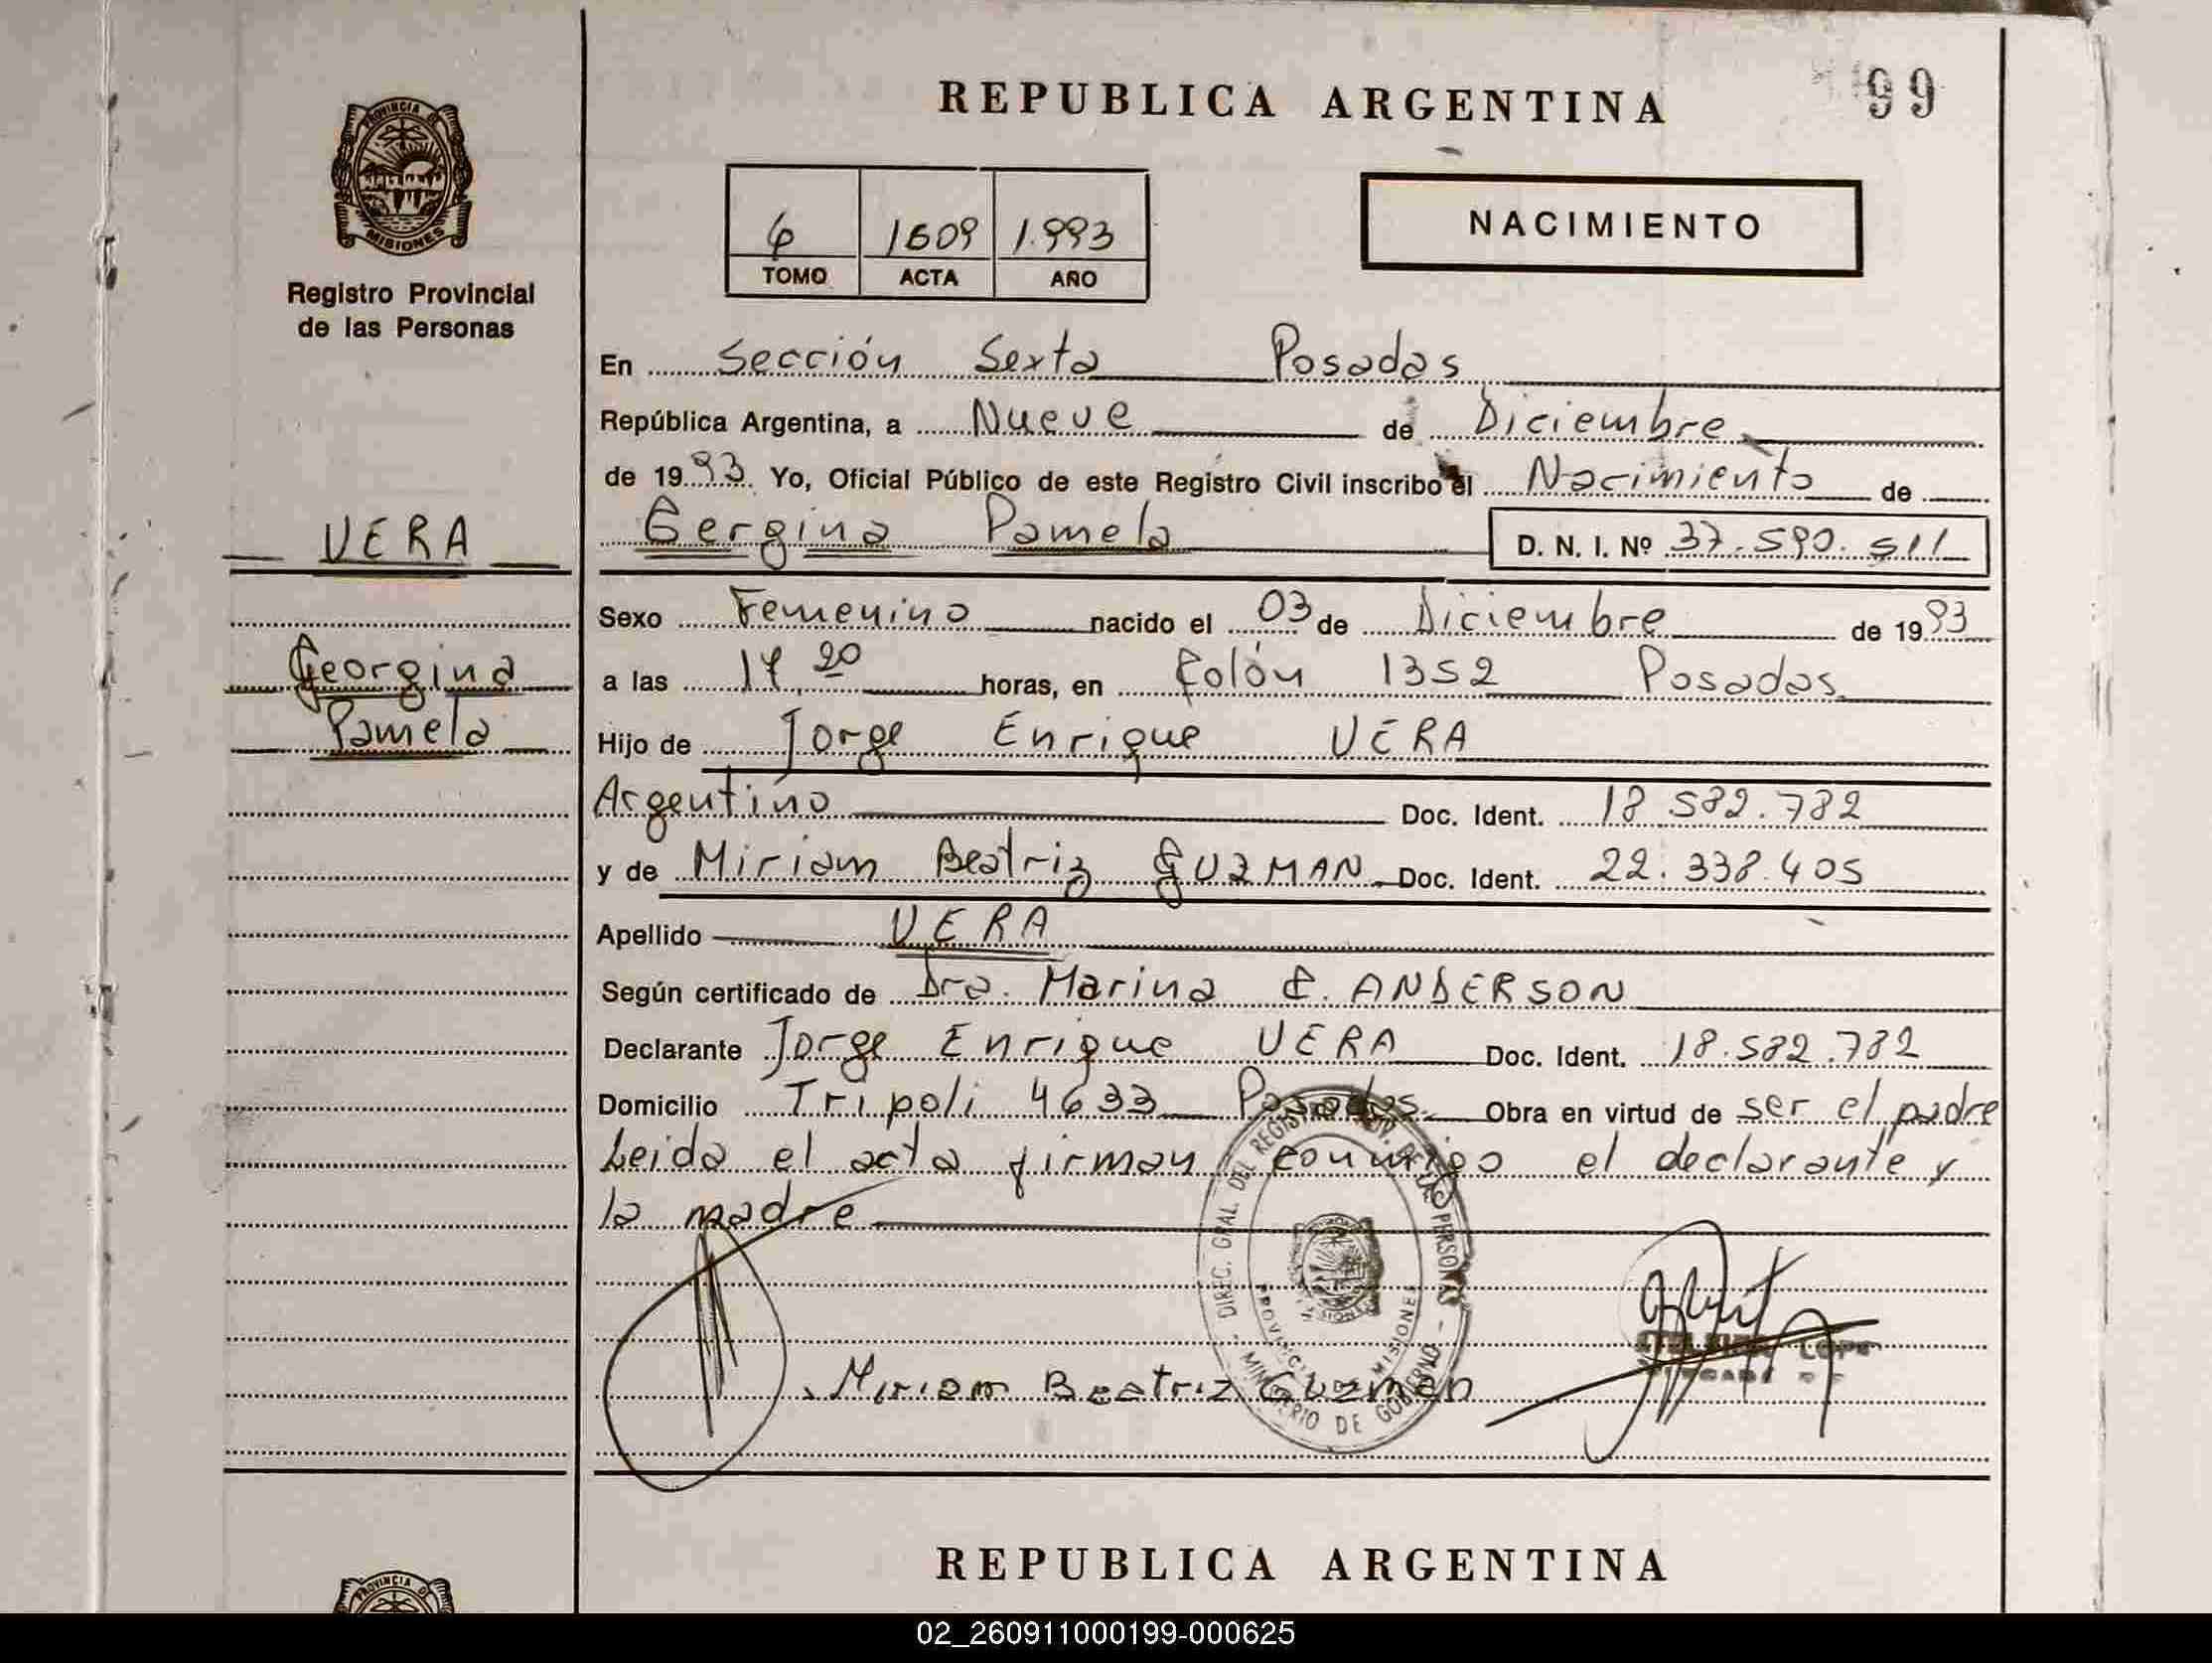 REPUBLICA ARGENTINA
99
PROVINCIA DE
MISIONES
Registro Provincial
de las Personas
6 1609 1.993
TOMO ACTA AÑO
NACIMIENTO
En Sección Sexta Posadas
República Argentina, a Nueve de Diciembre
de 1993. Yo, Oficial Público de este Registro Civil inscribo el Nacimiento de
VERA
Gergina Pamela D. N. I. Nº 37.590.511
Sexo Femenino nacido el 03 de Diciembre de 1993
Georgina
a las 17,20 horas, en Colón 1352 Posadas
Pamela
Hijo de Jorge Enrique VERA
Argentino Doc. Ident. 18 582.782
y de Miriam Beatriz GUZMAN Doc. Ident. 22.338.405
Apellido VERA
Según certificado de Dra. Marina E. ANDERSON
Declarante Jorge Enrique VERA Doc. Ident. 18.582.782
Domicilio Tripoli 4633 Posadas Obra en virtud de ser el padre
Leida el acta firman conmigo el declarante y
la madre
DIREC. GRAL. DEL REGISTRO PROV. DE LAS PERSONAS
PROVINCIA DE MISIONES
MINISTERIO DE GOBIERNO
Miriam Beatriz Guzmán
REPUBLICA ARGENTINA
PROVINCIA DE
02_260911000199-000625